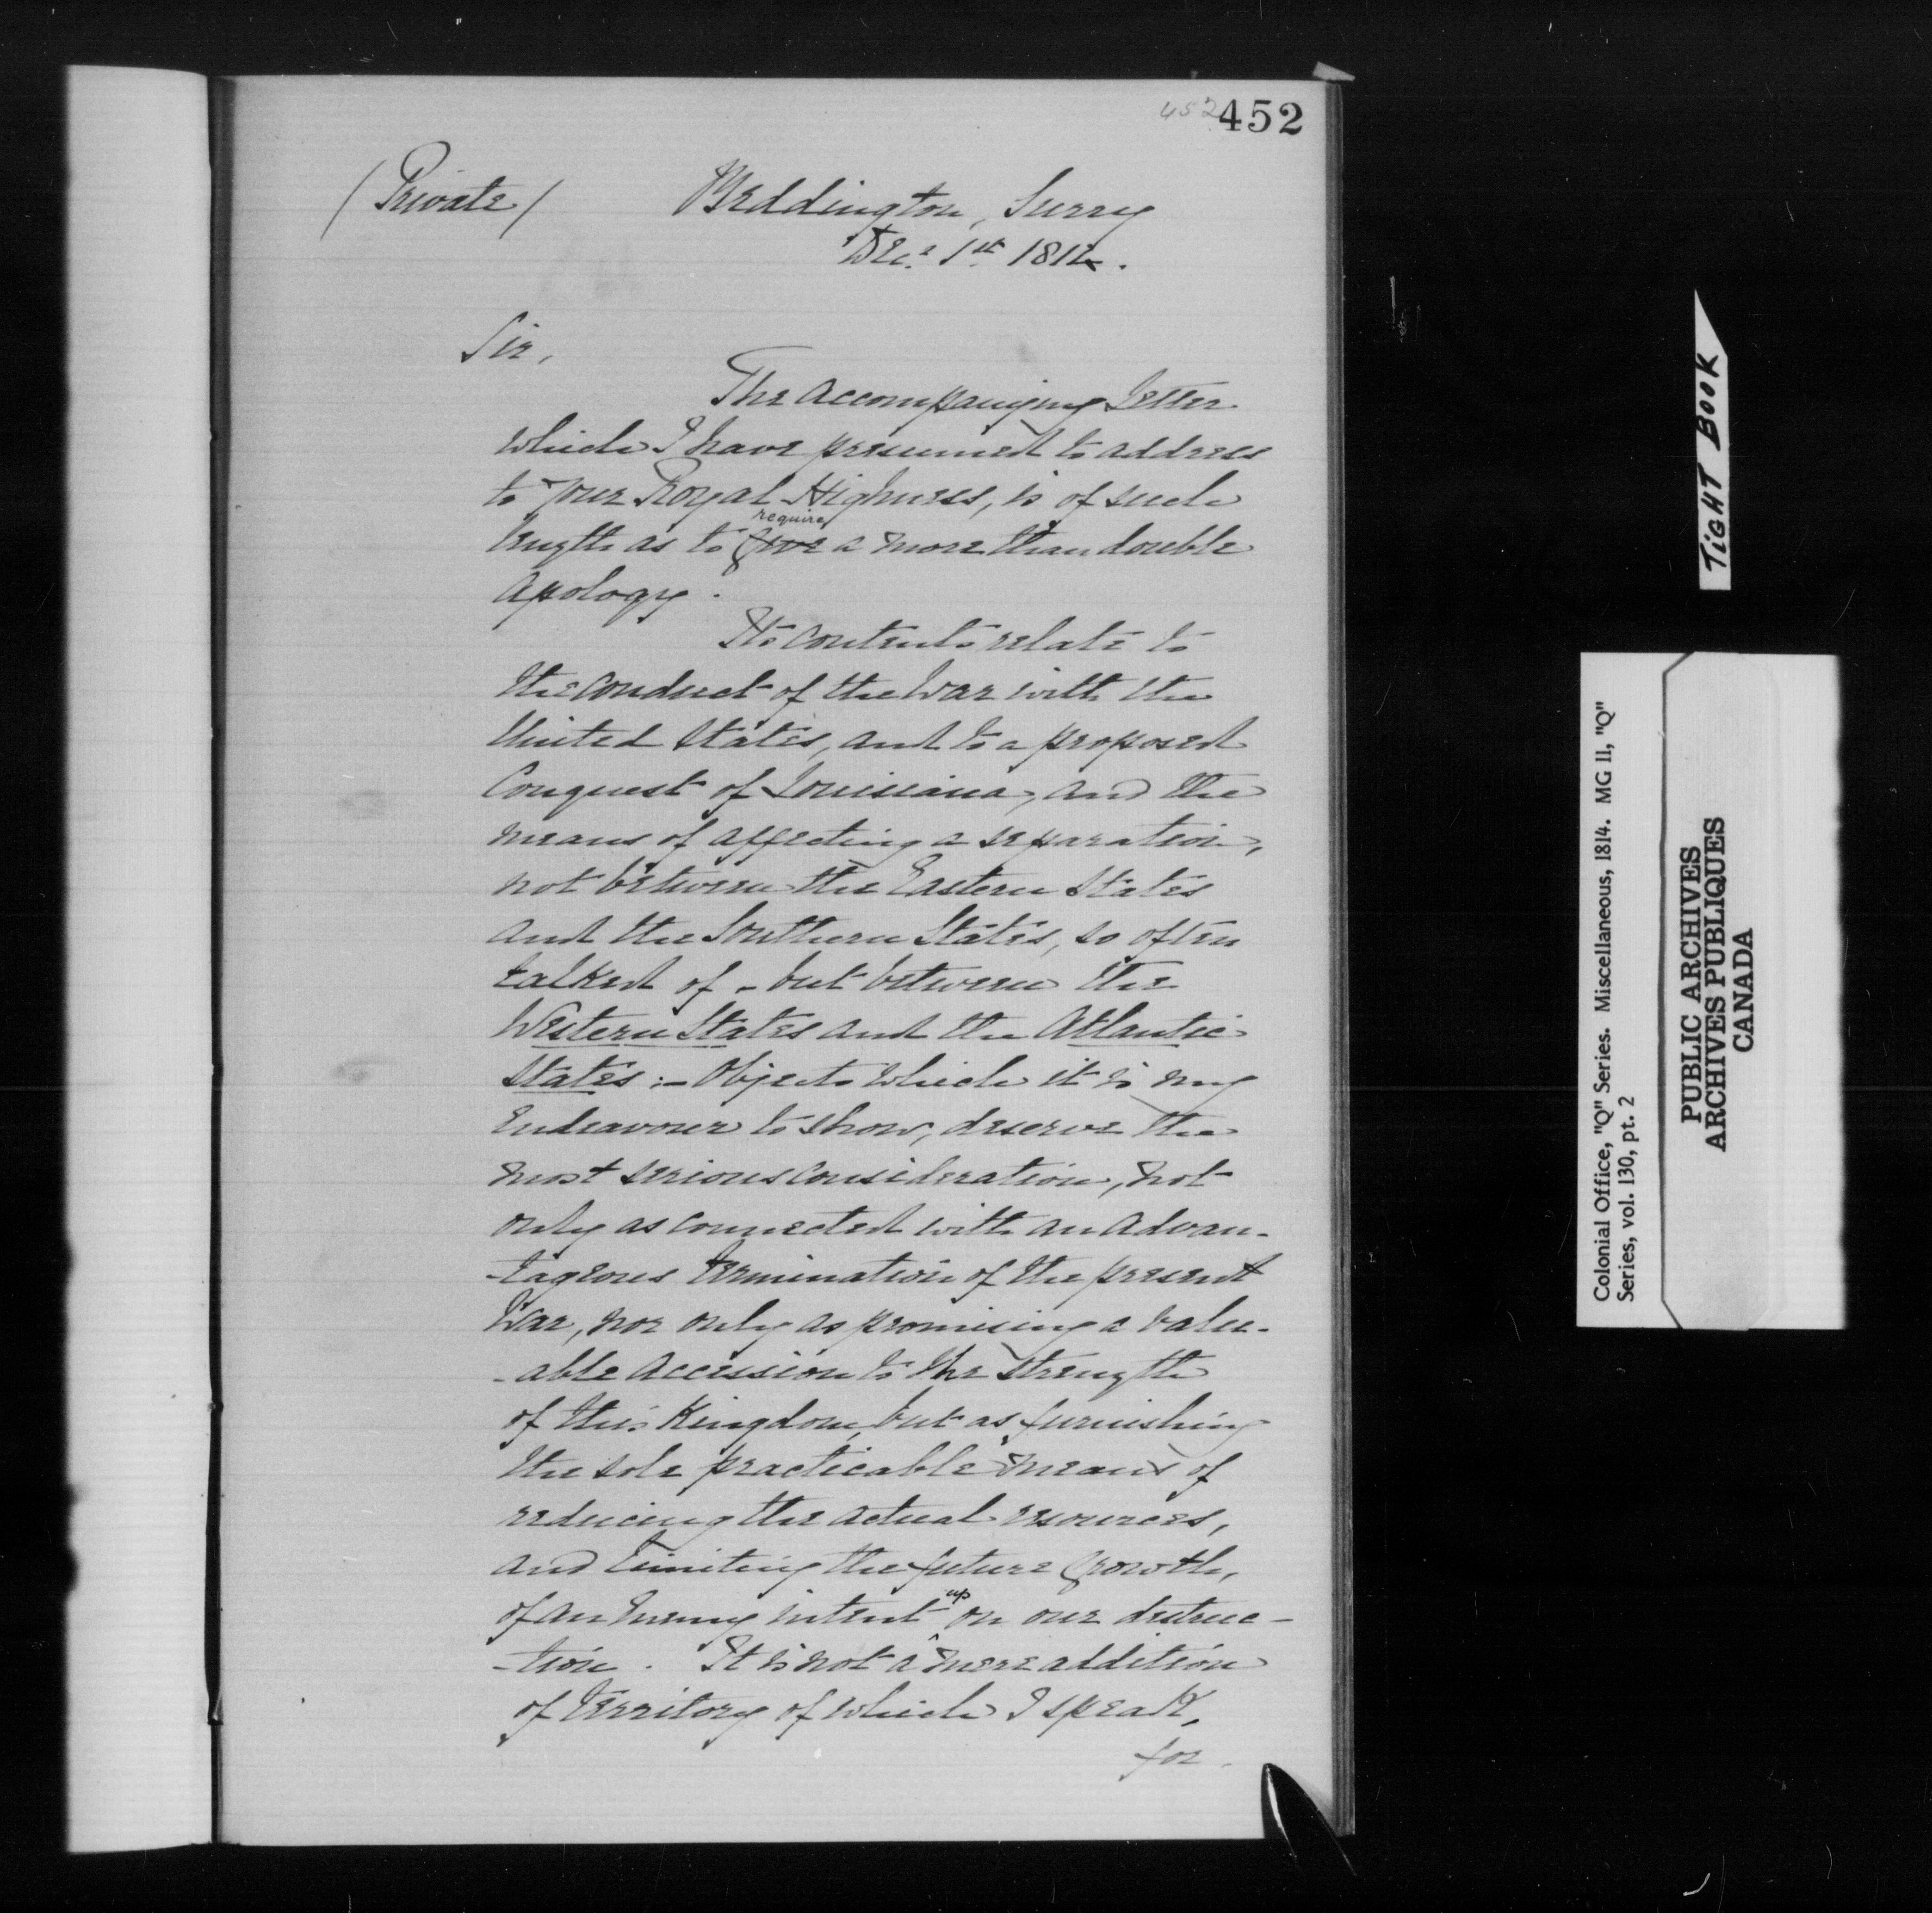 452 452
(Private)
Beddington, Surry
Decr 1st 1814.
Sir,
The accompanying Letter
which I have presumed to address
to your Royal Highness, is of such
length as to give require a more than double
apology.
Its contents relate to
the conduct of the War with the
United States, and to a proposed
Conquest of Louisiana, and the
means of affecting a separation,
not between the Eastern States
and the Southern States, so often
talked of – but between the
Western States and the Atlantic
States :– Objects which it is my
Endeavour to show, deserve the
most serious consideration, not
only as connected with an advan-
-tageous termination of the present
War, nor only as promising a valu-
-able accession to the strength
of this Kingdom, but as furnishing
the sole practicable means of
reducing the actual resources,
and limiting the future growth,
of an Enemy intent up on our destruc-
-tion. It is not a mere addition
of Territory of which I speak,
for
TIGHT BOOK
Colonial Office, "Q" Series. Miscellaneous, 1814. MG 11, "Q"
Series, vol. 130, pt. 2
PUBLIC ARCHIVES
ARCHIVES PUBLIQUES
CANADA